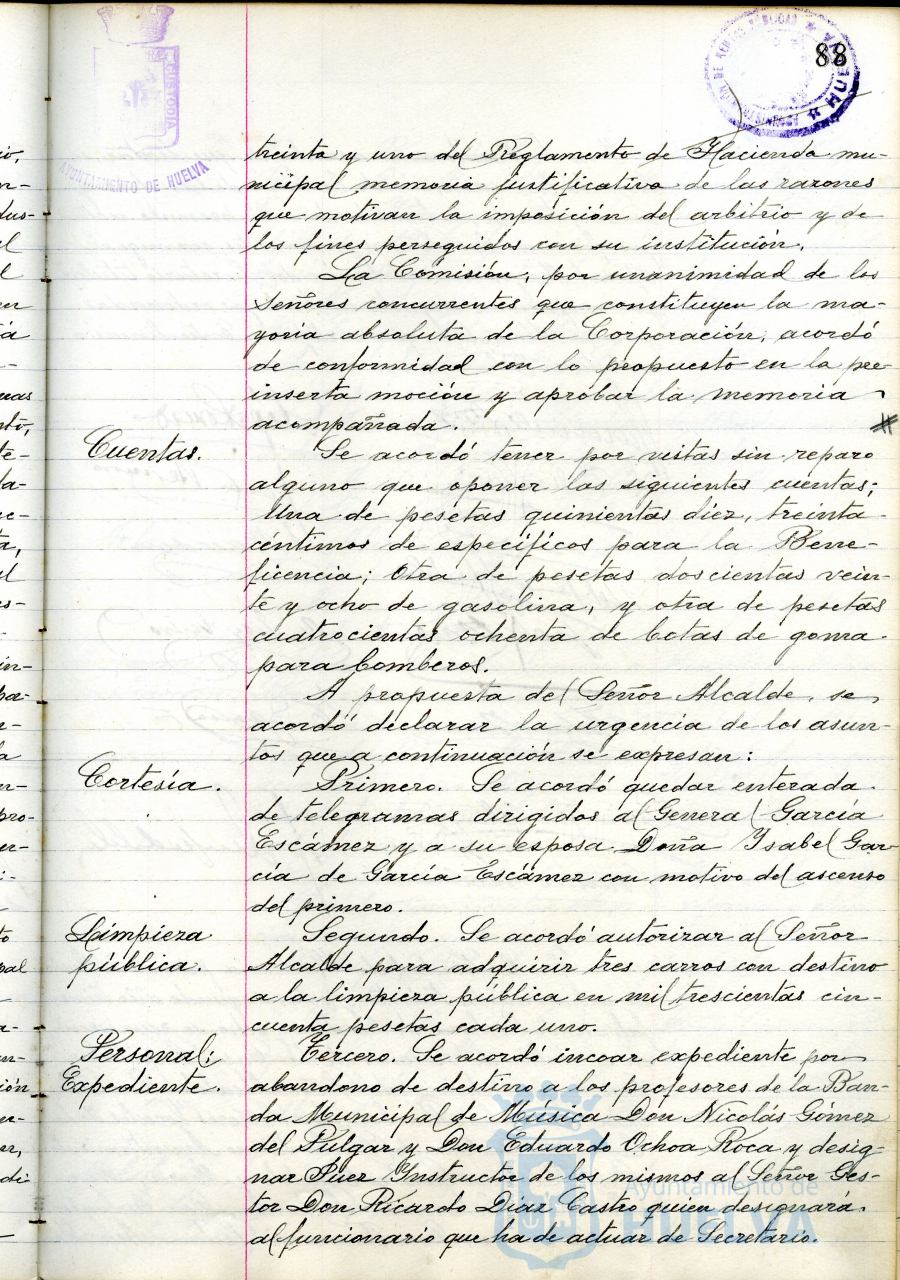 88
CUSTODIA
AYUNTAMIENTO DE HUELVA
HUELVA
treinta y uno del Reglamento de Hacienda mu-
nicipal memoria justificativa de las razones
que motivan la imposición del arbitrio y de
los fines perseguidos con su institución.
La Comisión, por unanimidad de los
Señores concurrentes que constituyen la ma-
yoria absoluta de la Corporación, acordó
de conformidad con lo propuesto en la pre-
inserta moción y aprobar la memoria
acompañada.
Cuentas.
Se acordó tener por vistas sin reparo
alguno que oponer las siguientes cuentas;
Una de pesetas quinientas diez, treinta
céntimos de específicos para la Bene-
ficencia; Otra de pesetas doscientas vein-
te y ocho de gasolina, y otra de pesetas
cuatrocientas ochenta de botas de goma
para bomberos.
A propuesta del Señor Alcalde, se
acordó declarar la urgencia de los asun-
tos que a continuación se expresan:
Cortesía.
Primero. Se acordó quedar enterada
de telegramas dirigidos al General García
Escámez y a su esposa Doña Ysabel Gar-
cía de García Escámez con motivo del ascenso
del primero.
Limpieza
pública.
Segundo. Se acordó autorizar al Señor
Alcalde para adquirir tres carros con destino
a la limpieza pública en mil trescientas cin-
cuenta pesetas cada uno.
Personal:
Expediente.
Tercero. Se acordó incoar expediente por
abandono de destino a los profesores de la Ban-
da Municipal de Música Don Nicolás Gómez
del Pulgar y Don Eduardo Ochoa Roca y desig-
nar Juez Ynstructor de los mismos al Señor Ges-
tor Don Ricardo Diaz Castro quien designará
al funcionario que ha de actuar de Secretario.
Ayuntamiento de
HUELVA